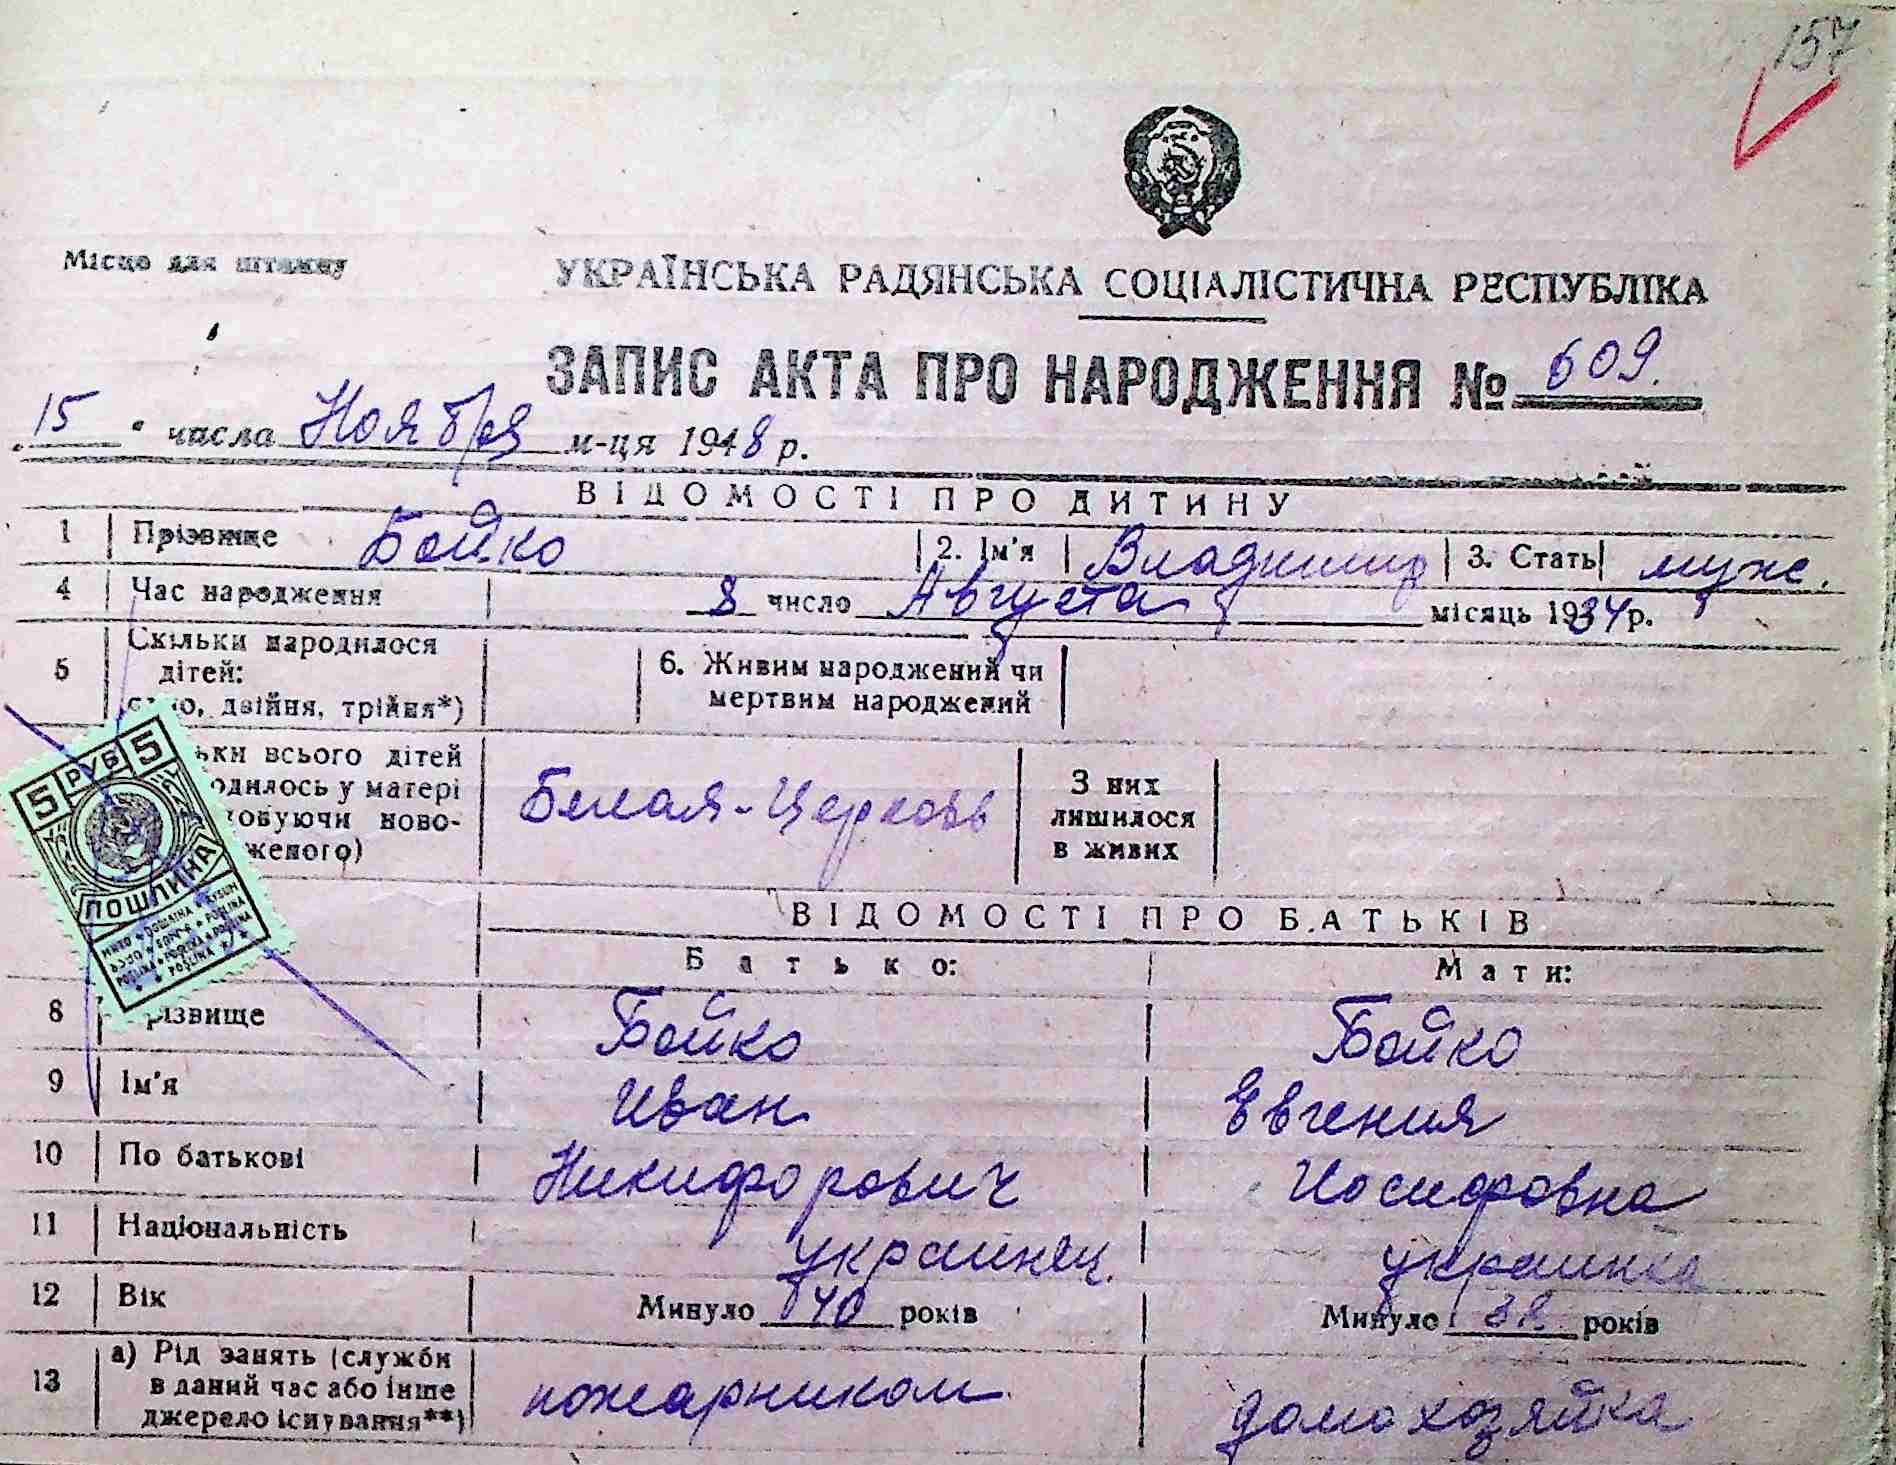 157
Місце для штампу
УКРАЇНСЬКА РАДЯНСЬКА СОЦІАЛІСТИЧНА РЕСПУБЛІКА
ЗАПИС АКТА ПРО НАРОДЖЕННЯ № 609.
15 " числа Ноября м-ця 1948 р.
ВІДОМОСТІ ПРО ДИТИНУ
1 Прізвище Бойко 2. Ім'я Владимир 3. Стать муж.
4 Час народження 8 число Августа місяць 1934 р.
5 Скільки народилося дітей: одно, двійня, трійня*) 6. Живим народжений чи мертвим народжений
ьки всього дітей одилось у матері ховуючи ново- женого) Белая-Церковь З них лишилося в живих
5 РУБ 5
ПОШЛИНА
ВІДОМОСТІ ПРО БАТЬКІВ
Батько: Мати:
8 різвище Бойко Бойко
9 Ім'я Иван Евгения
10 По батькові Никифорович Иосифовна
11 Національність украинец. украинка
12 Вік Минуло 40 років Минуло 38 років
13 а) Рід занять (служби в даний час або інше джерело існування**) пожарником домохозяйка